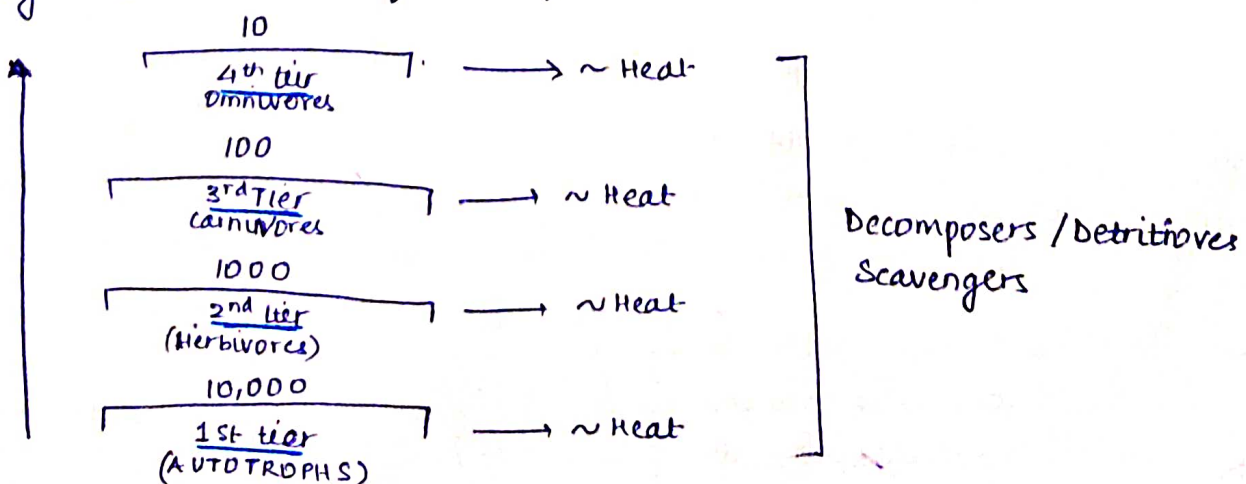 10
4th tier
omnivores
→ ~ Heat
100
3rd Tier
carnivores
→ ~ Heat
1000
2nd tier
(Herbivores)
→ ~ Heat
10,000
1st tier
(AUTOTROPHS)
→ ~ Heat
Decomposers / Detritioves
Scavengers